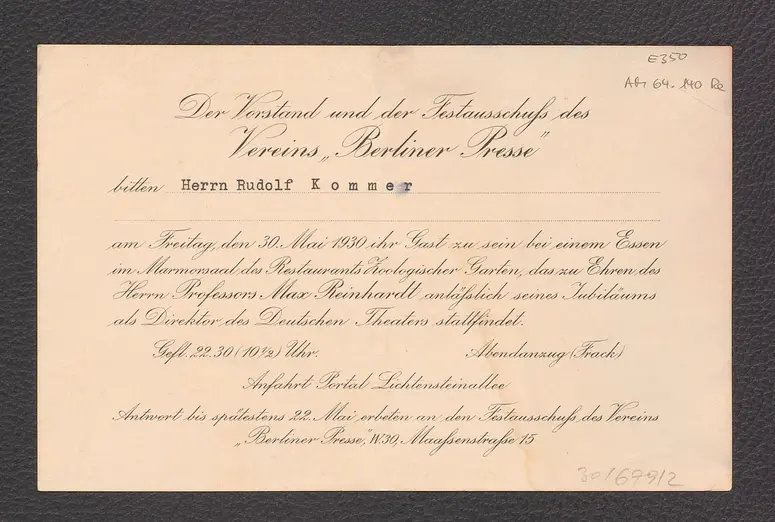 E350
64-140
Der Vorstand und der Festausschuß des
Vereins „Berliner Presse"
bitten Herrn Rudolf Kommer
am Freitag, den 30. Mai 1930 ihr Gast zu sein bei einem Essen
im Marmorsaal des Restaurants Zoologischer Garten, das zu Ehren des
Herrn Professors Max Reinhardt anläßlich seines Jubiläums
als Direktor des Deutschen Theaters stattfindet.
Gefl. 22.30 (10½) Uhr. Abendanzug (Frack)
Anfahrt Portal Lichtensteinallee
Antwort bis spätestens 22. Mai erbeten an den Festausschuß des Vereins
„Berliner Presse", W.30, Maaßenstraße 15
30/679/2